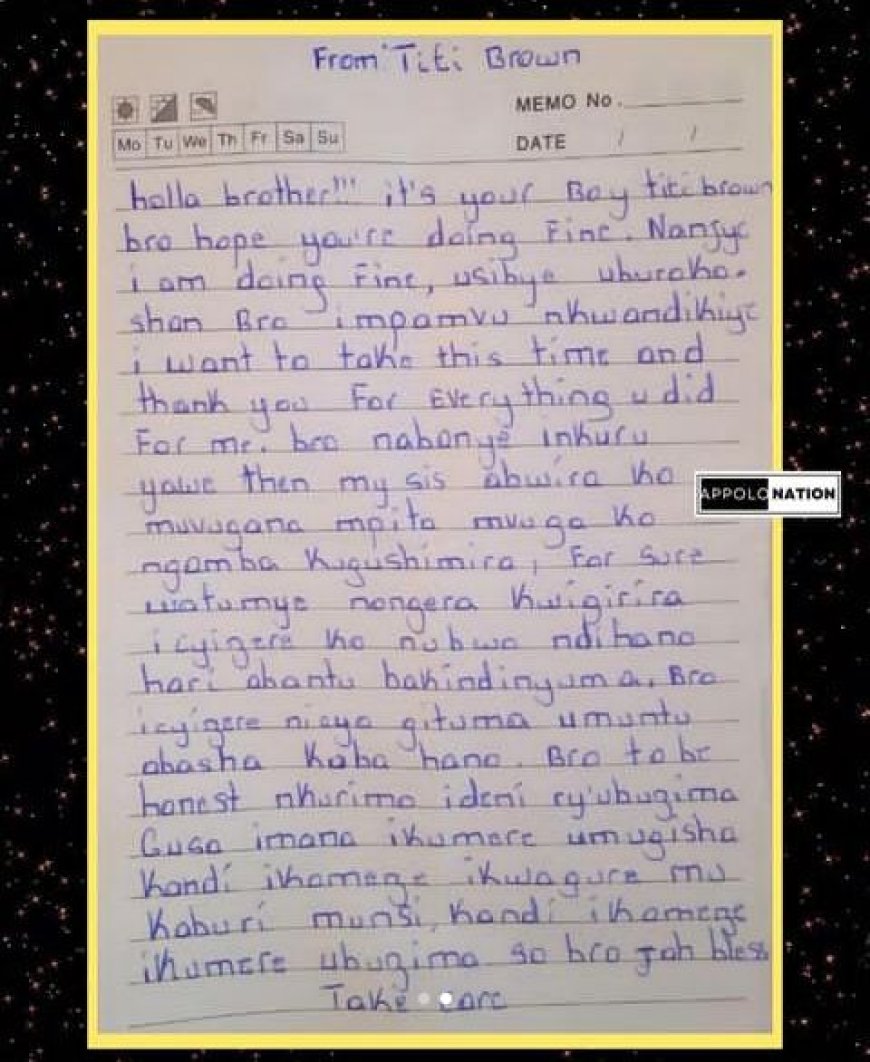 From Titi Brown
MEMO No.
Mo Tu We Th Fr Sa Su
DATE / /
holla brother!!! it's your Boy titi brown
bro hope you're doing Fine. Nanjye
i am doing Fine, usibye uburoko.
shan Bro impamvu nkwandikiye
i want to take this time and
thank you For Everything u did
For me. bro nabonye inkuru
yawe then my sis abwira ko
muvugana mpita mvuga ko
ngomba Kugushimira, For Sure
watumye nongera Kwigirira
icyizere ko nubwo ndihano
hari abantu bakindinyuma. Bro
icyizere nicyo gituma umuntu
abasha Kuba hano. Bro to be
honest nkurimo ideni ry'ubuzima
Gusa imana ikumere umugisha
Kandi ikomeze ikwagure mu
Kaburi munsi, Kandi ikomeze
ikumere ubuzima so bro Jah bless
Take care
APPOLONATION